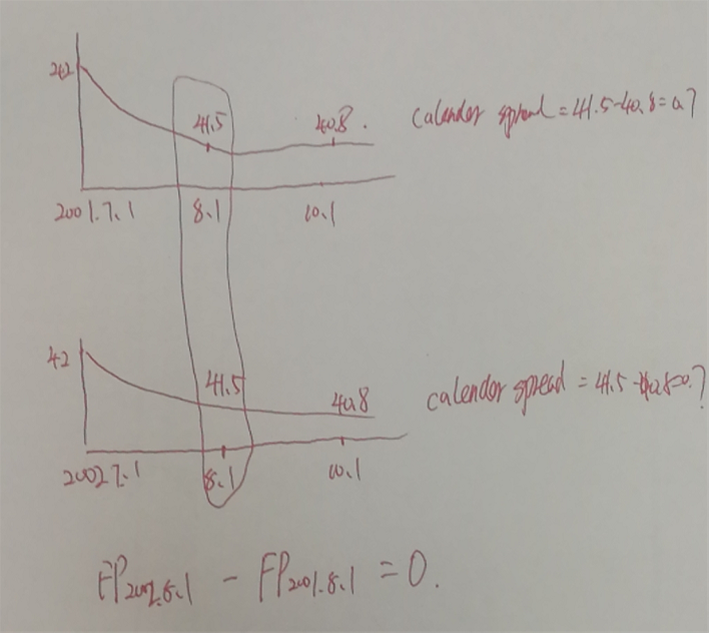 42
41.5
40.8.
calender spread = 41.5-40.8=0.7
2001.7.1
8.1
10.1
42
41.5
40.8
calender spread = 41.5-40.8=0.7
2002 7.1
8.1
10.1
FP2002.8.1 - FP2001.8.1 = 0.